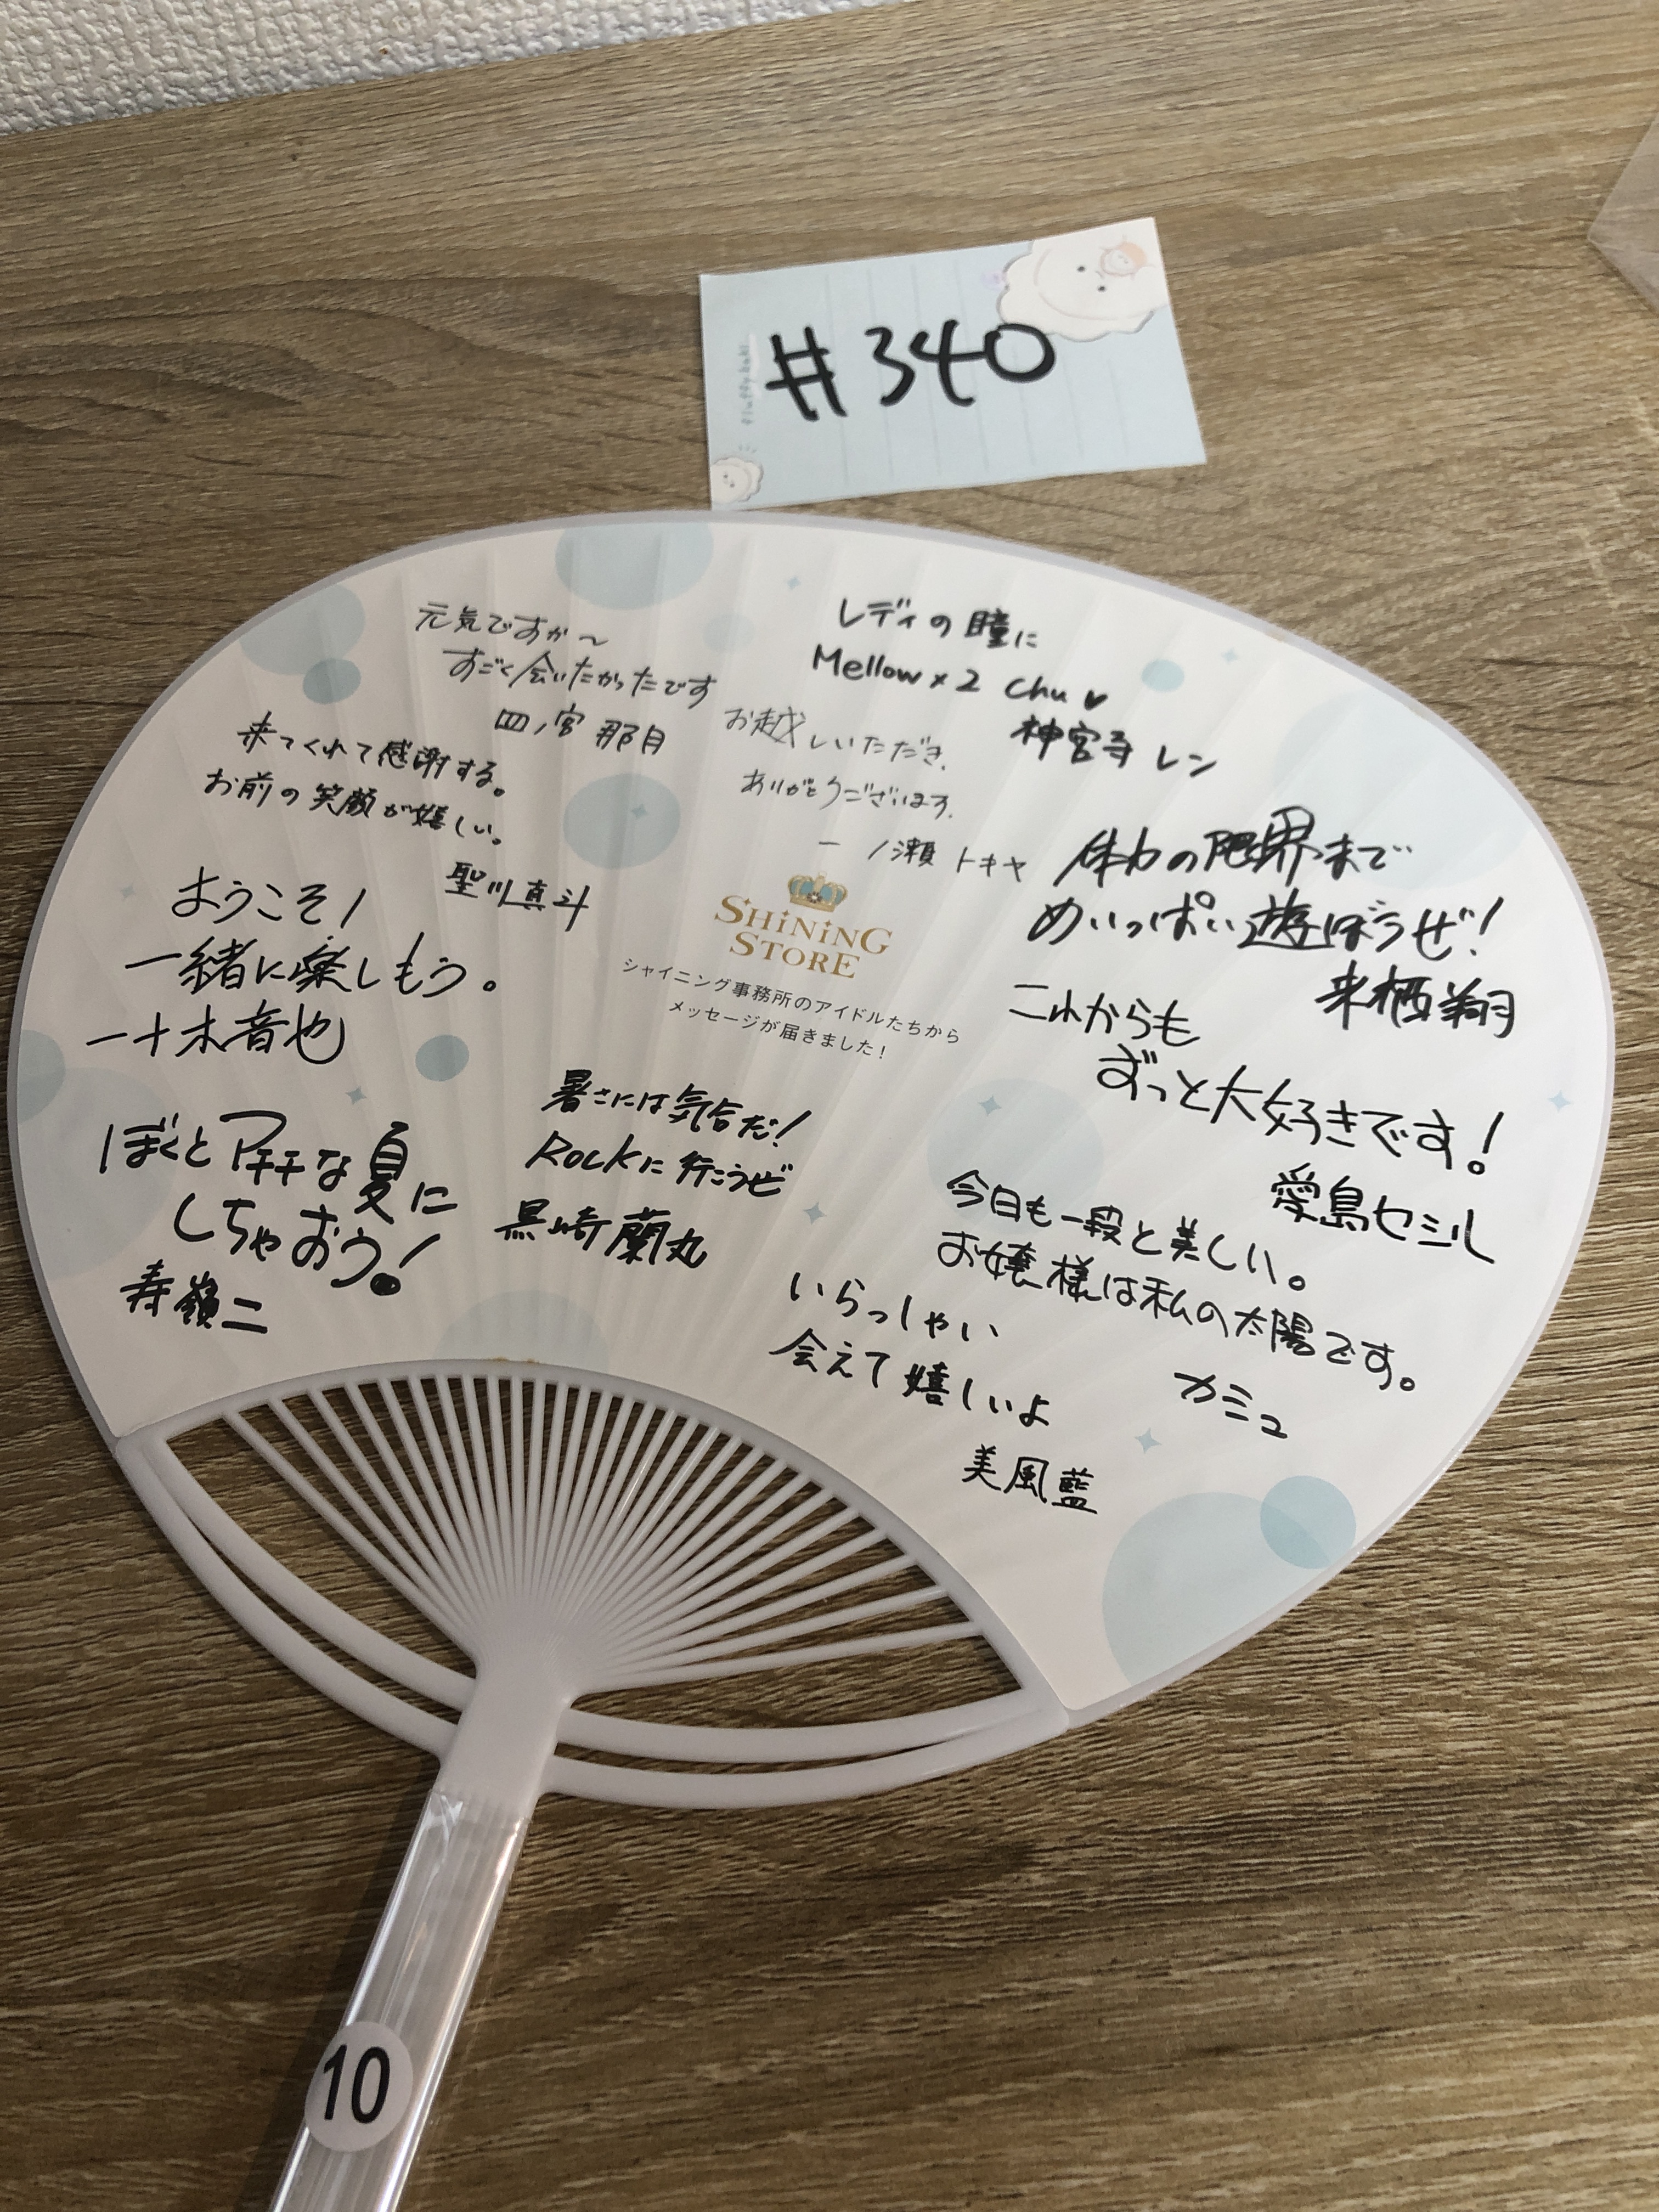 #340
fluffy baki
元気ですか〜
すごく会いたかったです
四ノ宮那月
レディの瞳に
Mellow×2 Chu♥
神宮寺レン
来てくれて感謝する。
お前の笑顔が嬉しい。
聖川真斗
お越しいただき、
ありがとうございます。
一ノ瀬トキヤ
体力の限界まで
めいっぱい遊ぼうぜ!
来栖翔
ようこそ!
一緒に楽しもう。
一十木音也
SHINING
STORE
シャイニング事務所のアイドルたちから
メッセージが届きました!
これからも
ずっと大好きです!
愛島セシル
ぼくとアチチな夏に
しちゃおう!
寿嶺二
暑さには気合だ!
Rockに行こうぜ
黒崎蘭丸
今日も一段と美しい。
お嬢様は私の太陽です。
カミュ
いらっしゃい
会えて嬉しいよ
美風藍
10